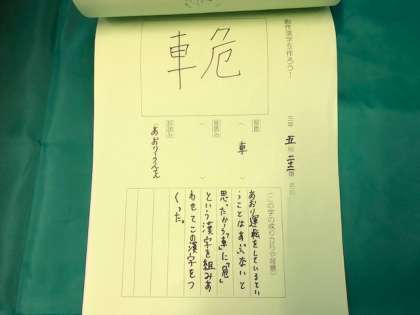 創作漢字を作ろう!
三年 五組 二十三番 氏名
車危
部首
( 車 )
音読み
( )
訓読み
(あおりうんてん)
(この字の成り立ちや背景)
あおり運転をしているとい
うことはあぶないと
思ったから「車」に「危」
という漢字を組みあ
わせてこの漢字をつ
くった。